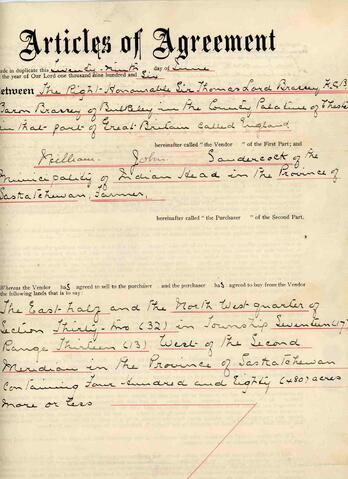 Articles of Agreement
made in duplicate this Twenty-Ninth day of June
the year of Our Lord one thousand nine hundred and Six
Between The Right Honourable Sir Thomas Lord Brassey K.C.B
Baron Brassey of Bulkeley in the County Palatine of Chester
in that part of Great Britain called England
hereinafter called "the Vendor" of the First Part; and
William John Sandercock of the
Municipality of Indian Head in the Province of
Saskatchewan, Farmer,
hereinafter called "the Purchaser" of the Second Part.
Whereas the Vendor has agreed to sell to the purchaser and the purchaser has agreed to buy from the Vendor
the following lands that is to say:
The East half and the North West quarter of
Section Thirty-two (32) in Township Seventeen (17)
Range Thirteen (13) West of the Second
Meridian in the Province of Saskatchewan
containing Four hundred and Eighty (480) acres
more or less